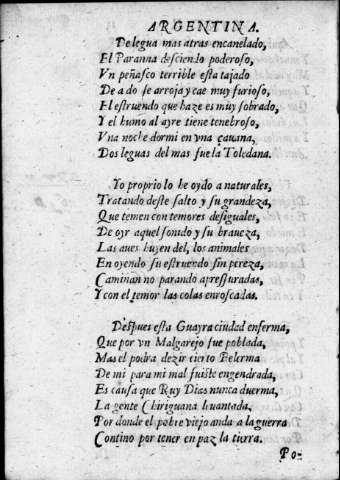 ARGENTINA.
De legua mas atras encanelado,
El Paranna desciende poderoso,
Vn peñasco terrible esta tajado
De a do se arroja y cae muy furioso,
El estruendo que haze es muy sobrado,
Y el humo al ayre tiene tenebroso,
Vna noche dormi en vna çauana,
Dos leguas del mas fue la Toledana.
Yo proprio lo he oydo a naturales,
Tratando deste salto y su grandeza,
Que temen con temores desiguales,
De oyr aquel sonido y su braueza,
Las aues huyen del, los animales
En oyendo su estruendo sin pereza,
Caminan no parando apressuradas,
Y con el temor las colas enroscadas.
Despues esta Guayra ciudad enferma,
Que por vn Malgarejo fue poblada,
Mas el podra dezir cierto Pelerma
De mi para mi mal fuiste engendrada,
Es causa que Ruy Dias nunca duerma,
La gente Chiriguana leuantada,
Por donde el pobre viejo anda a la guerra
Contino por tener en paz la tierra.
Po-